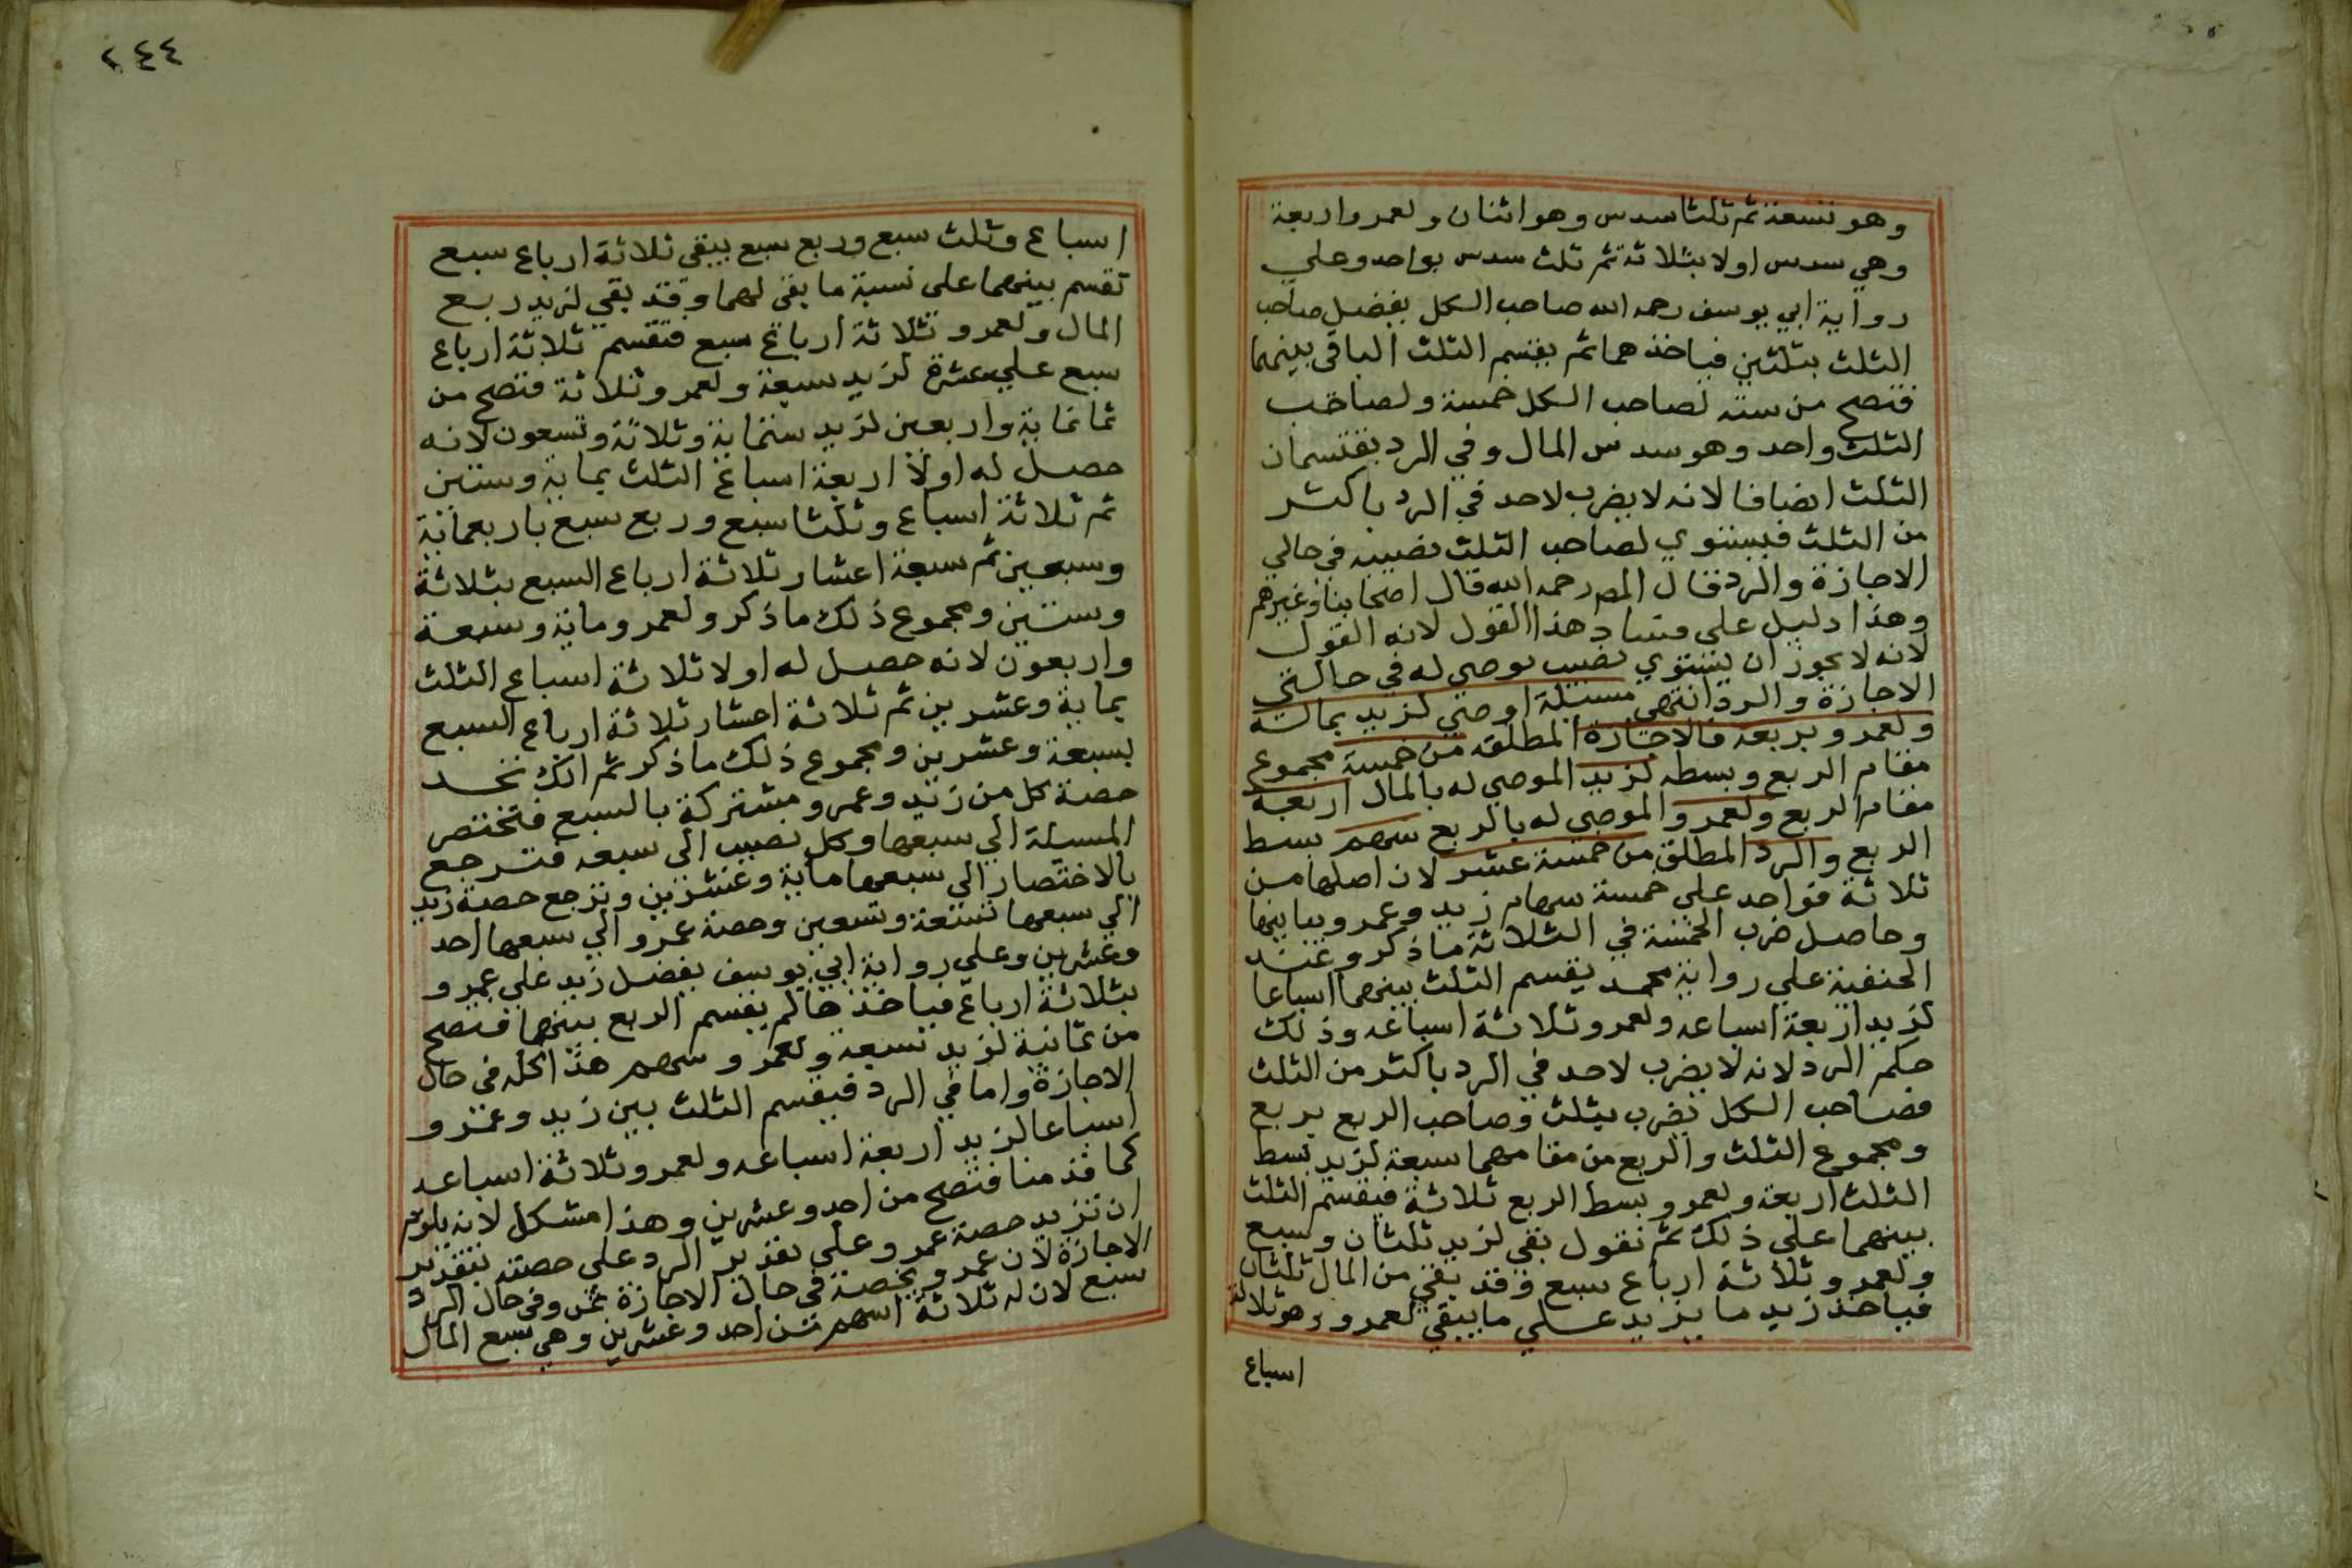 وهو تسعة ثم ثلثا سدس وهو اثنان ولعمرو اربعة
وهي سدس اولا بثلاثة ثم ثلث سدس بواحد وعلي
رواية ابي يوسف رحمه الله صاحب الكل يفضل صاحب
الثلث بثلثين فياخذهما ثم يقسم الثلث الباقي بينهما
فتصح من ستة لصاحب الكل خمسة ولصاحب
الثلث واحد وهو سدس المال وفي الرد يقتسمان
الثلث انصافا لانه لا يضرب لاحد في الرد باكثر
من الثلث فيستوي لصاحب الثلث نصيبه في حالي
الاجازة والرد قال المص رحمه الله قال اصحابنا وغيرهم
وهذا دليل علي فساد هذا القول لانه القول
لانه لا يجوز ان يستوي نصيب موصي له في حالتي
الاجازة والرد انتهي مسئلة اوصي لزيد بماله
ولعمرو بربعه فالاجازة المطلقه من خمسة مجموع
مقام الربع وبسطه لزيد الموصي له بالمال اربعة
مقام الربع ولعمرو الموصي له بالربع سهم بسط
الربع والرد المطلق من خمسة عشر لان اصلها من
ثلاثة فواحد علي خمسة سهام زيد وعمرو يباينها
وحاصل ضرب الخمسة في الثلاثة ما ذكر وعند
الحنفية علي رواية محمد يقسم الثلث بينهما اسباعا
لزيد اربعة اسباعه ولعمرو ثلاثة اسباعه وذلك
حكم الرد لانه لا يضرب لاحد في الرد باكثر من الثلث
فصاحب الكل يضرب بثلث وصاحب الربع بربع
ومجموع الثلث والربع من مقامهما سبعة لزيد بسط
الثلث اربعة ولعمرو بسط الربع ثلاثة فيقسم الثلث
بينهما علي ذلك ثم نقول بقي لزيد ثلثان وسبع
ولعمرو ثلاثة ارباع سبع وقد بقي من المال ثلثان
فياخذ زيد ما يزيد علي ما يبقي لعمرو وهو ثلاثة
اسباع
٢٤٤
اسباع وثلث سبع وربع سبع يبقي ثلاثة ارباع سبع
تقسم بينهما علي نسبة ما بقي لهما وقد بقي لزيد ربع
المال ولعمرو ثلاثة ارباع سبع فتقسم ثلاثة ارباع
سبع علي عشرة لزيد سبعة ولعمرو ثلاثة فتصح من
ثمانماية واربعين لزيد ستماية وثلاثة وتسعون لانه
حصل له اولا اربعة اسباع الثلث بماية وستين
ثم ثلاثة اسباع وثلثا سبع وربع سبع باربعماية
وسبعين ثم سبعة اعشار ثلاثة ارباع السبع بثلاثة
وستين ومجموع ذلك ما ذكر ولعمرو ماية وسبعة
واربعون لانه حصل له اولا ثلاثة اسباع الثلث
بماية وعشرين ثم ثلاثة اعشار ثلاثة ارباع السبع
بسبعة وعشرين ومجموع ذلك ما ذكر ثم انك تجد
حصة كل من زيد وعمرو مشتركة بالسبع فتختصر
المسيلة الي سبعها وكل نصيب الي سبعه فترجع
بالاختصار الي سبعها ماية وعشرين وترجع حصة زيد
الي سبعها تسعة وتسعين وحصة عمرو الي سبعها احد
وعشرين وعلي رواية ابي يوسف يفضل زيد علي عمرو
بثلاثة ارباع فياخذها ثم يقسم الربع بينهما فتصح
من ثمانية لزيد سبعة ولعمرو سهم هذا كله في حال
الاجازة واما في الرد فيقسم الثلث بين زيد وعمرو
اسباعا لزيد اربعة اسباعه ولعمرو ثلاثة اسباعه
كما قدمنا فتصح من احد وعشرين وهذا مشكل لانه يلزم
ان تزيد حصة عمرو علي تقدير الرد علي حصته بتقدير
الاجازة لان عمرو يخصه في حال الاجازة ثمن وفي حال الرد
سبع لان له ثلاثة اسهم من احد وعشرين وهي سبع المال